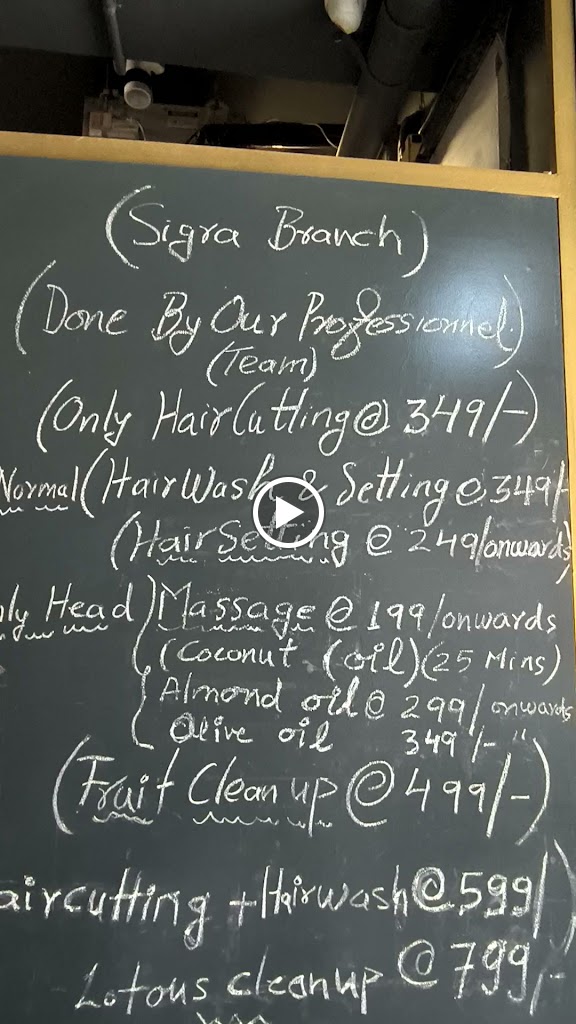 (Sigra Branch)
(Done By Our Professionnel)
(Team)
(Only HairCutting @ 349/-)
Normal (HairWash & Setting @ 349/-
(Hair Setting @ 249/onwards)
nly Head) Massage @ 199/onwards
(Coconut (oil) (25 Mins)
Almond oil @ 299/onwards
Olive oil 349/- "
(Fruit Clean up @ 499/-)
aircutting + Hairwash @ 599/)
Lotous cleanup @ 799/-